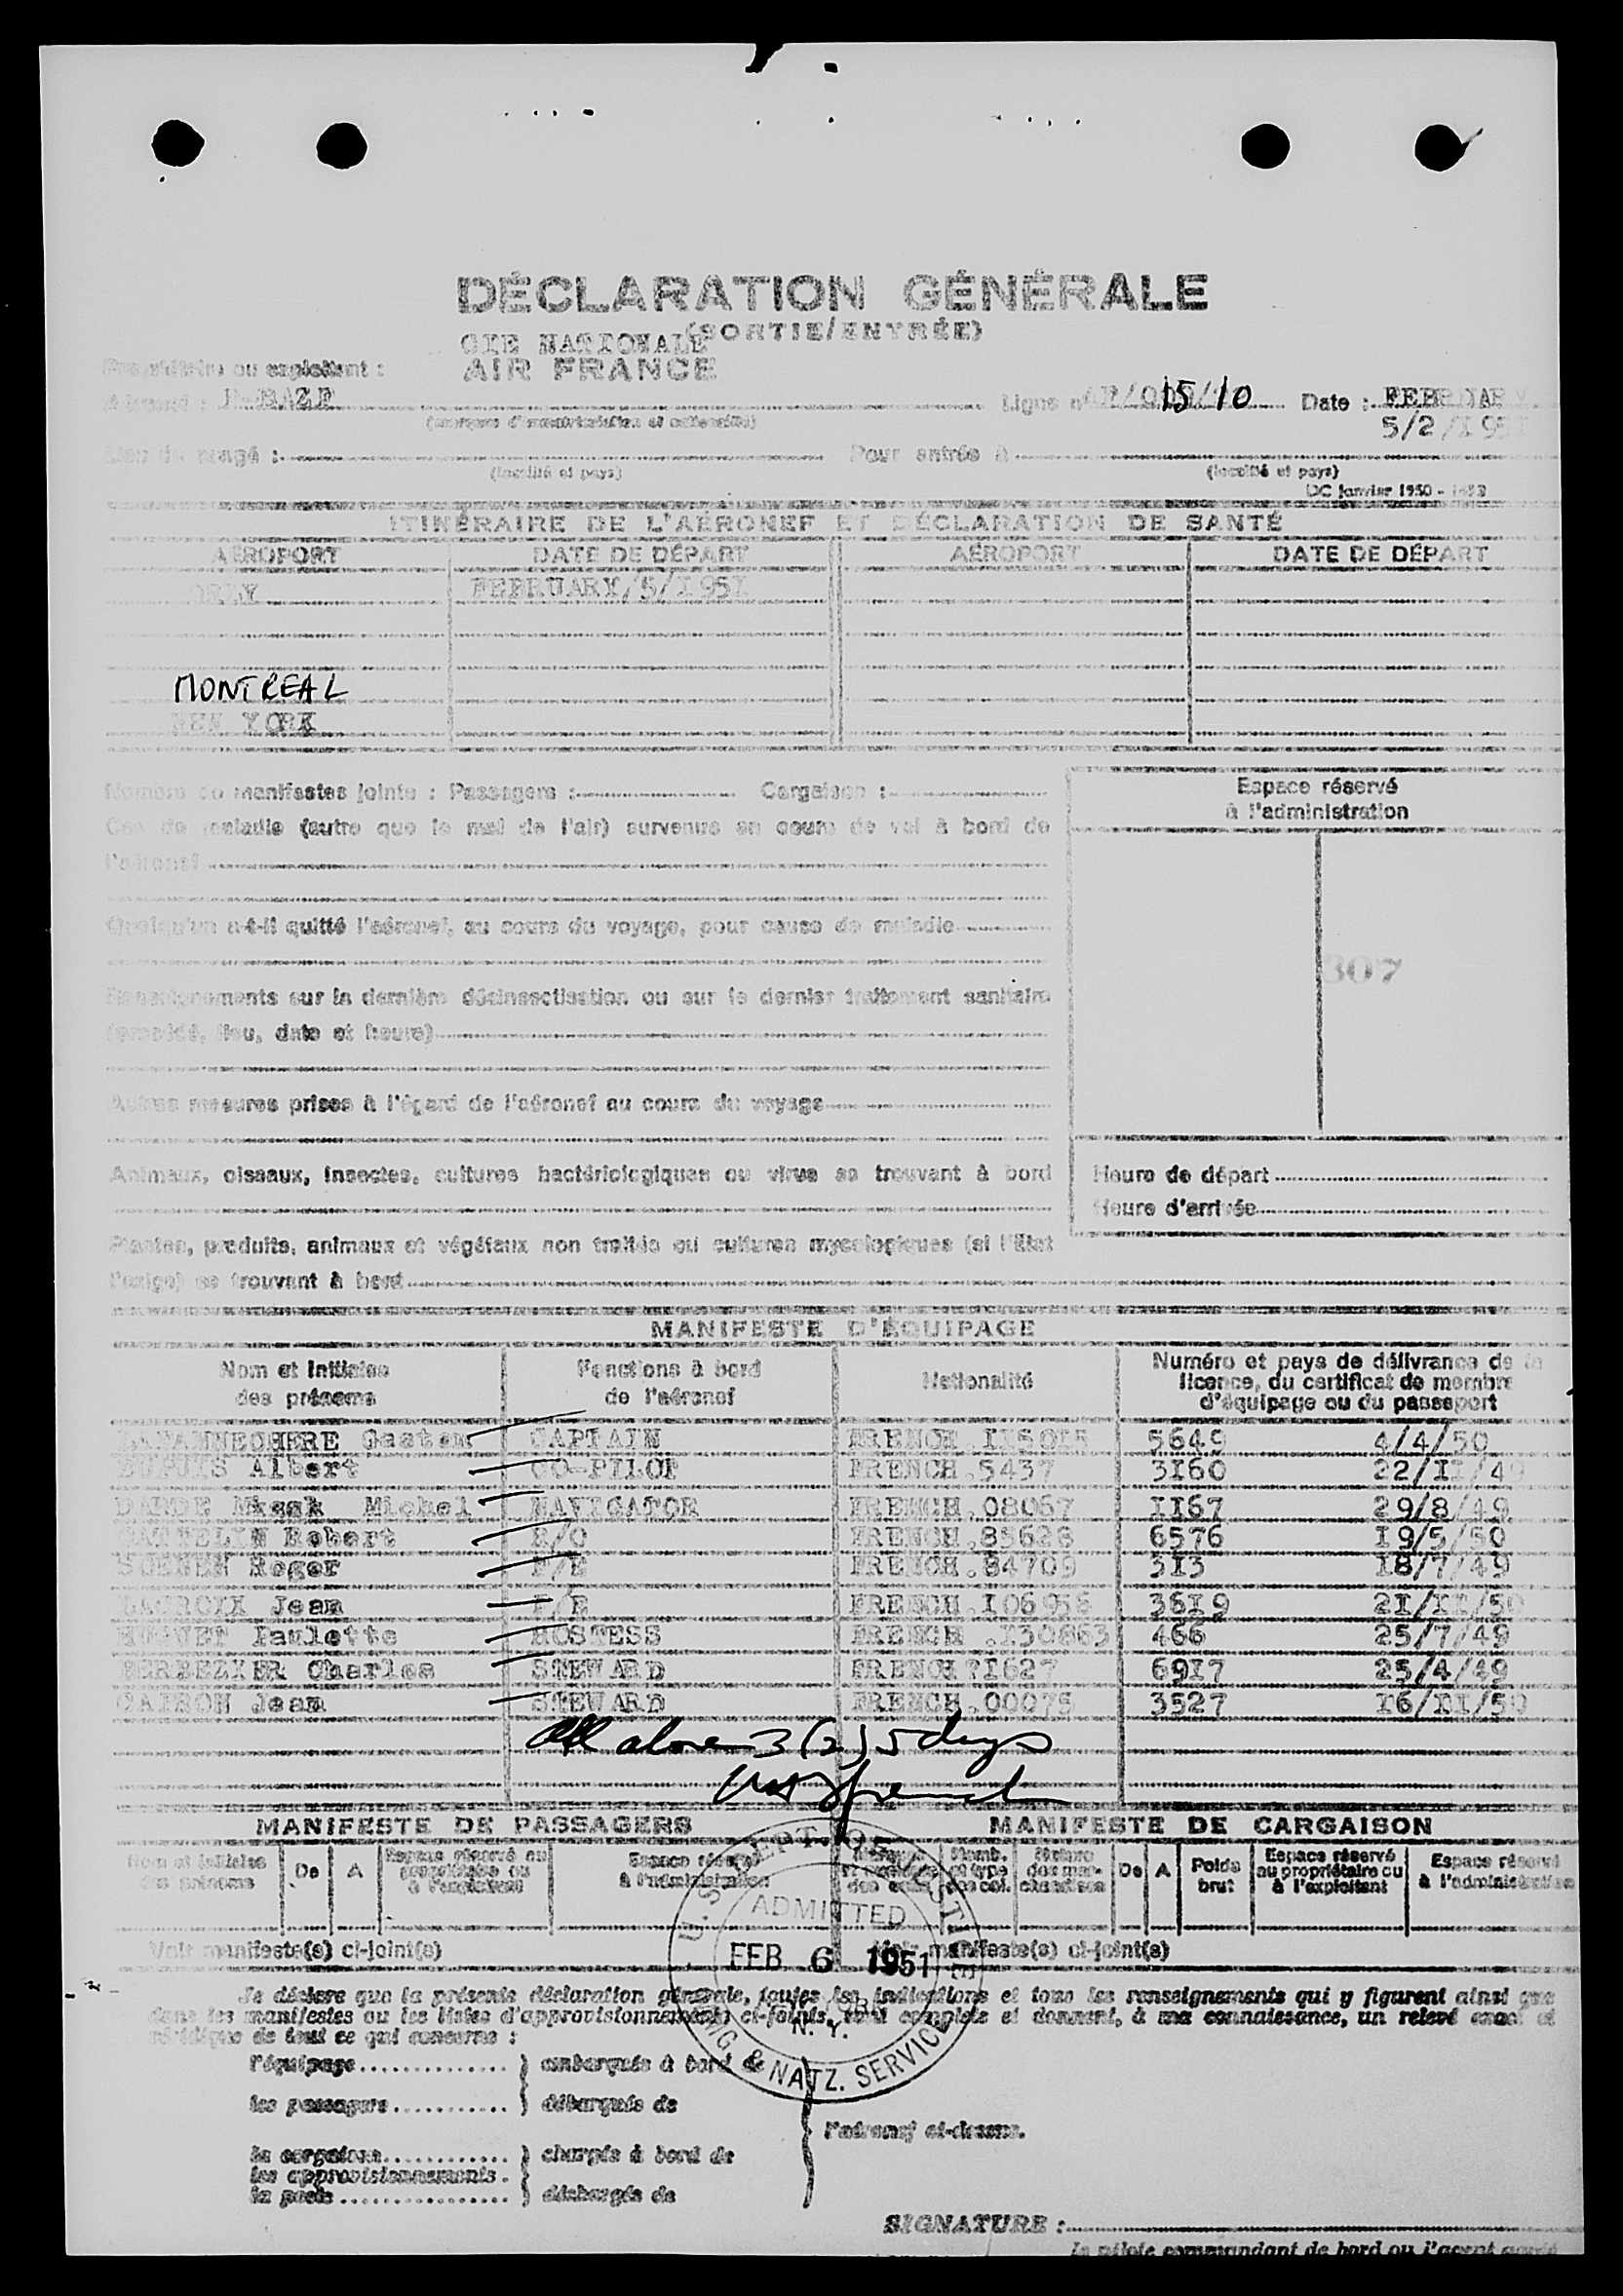 DÉCLARATION GÉNÉRALE
(SORTIE/ENTRÉE)
CIE NATIONALE
ou exploitant : AIR FRANCE
F-BAZP Ligne n° 15/10 Date : FEBRUARY
5/2/1951
Pour entrée à
(localité et pays) (localité et pays)
DC Janvier 1950
ITINÉRAIRE DE L'AÉRONEF ET DÉCLARATION DE SANTÉ
AÉROPORT DATE DE DÉPART AÉROPORT DATE DE DÉPART
ORLY FEBRUARY/5/I951
MONTREAL
NEW YORK
Nombre de manifestes joints : Passagers : Cargaison :
Cas de maladie (autre que le mal de l'air) survenus en cours de vol à bord de
l'aéronef
Quelqu'un a-t-il quitté l'aéronef, au cours du voyage, pour cause de maladie
Renseignements sur la dernière désinsectisation ou sur le dernier traitement sanitaire
(procédé, lieu, date et heure)
Autres mesures prises à l'égard de l'aéronef au cours du voyage
Animaux, oiseaux, insectes, cultures bactériologiques ou virus se trouvant à bord
Plantes, produits, animaux et végétaux non traités ou cultures mycologiques (si l'État
l'exige) se trouvant à bord
Espace réservé
à l'administration
307
Heure de départ
Heure d'arrivée
MANIFESTE D'ÉQUIPAGE
Nom et initiales des prénoms Fonctions à bord de l'aéronef Nationalité Numéro et pays de délivrance de la licence, du certificat de membre d'équipage ou du passeport
Gaston CAPTAIN FRENCH 5649 4/4/50
DUPUIS Albert CO-PILOT FRENCH.5437 3I60 22/II/49
Michel NAVIGATOR FRENCH.08067 II67 29/8/49
Robert R/O FRENCH.85628 6576 I9/5/50
Roger F/E FRENCH.84709 3I3 I8/7/49
LACROIX Jean F/E FRENCH.I06958 36I9 2I/II/50
HUGUET Paulette HOSTESS FRENCH .I30863 466 25/7/49
Charles STEWARD FRENCH 7I627 69I7 25/4/49
CAIRON Jean STEWARD FRENCH.00075 3527 I6/II/50
All above 3(2) 5 days
MANIFESTE DE PASSAGERS MANIFESTE DE CARGAISON
Nom et initiales des prénoms De A Espace réservé au propriétaire ou à l'exploitant Espace réservé à l'administration De A Poids brut Espace réservé au propriétaire ou à l'exploitant Espace réservé à l'administration
Voir manifeste(s) ci-joint(s) Voir manifeste(s) ci-joint(s)
U.S. DEPT. OF JUSTICE
ADMITTED
FEB 6 1951
N. Y.
IMMIG. & NATZ. SERVICE
Je déclare que la présente déclaration générale, toutes les indications et tous les renseignements qui y figurent ainsi que
dans les manifestes ou les listes d'approvisionnements ci-joints, sont complets et donnent, à ma connaissance, un relevé exact et
véridique de tout ce qui concerne :
l'équipage embarqués à bord de
les passagers débarqués de
l'aéronef ci-dessus.
la cargaison chargés à bord de
les approvisionnements
la poste déchargés de
SIGNATURE :
le pilote commandant de bord ou l'agent